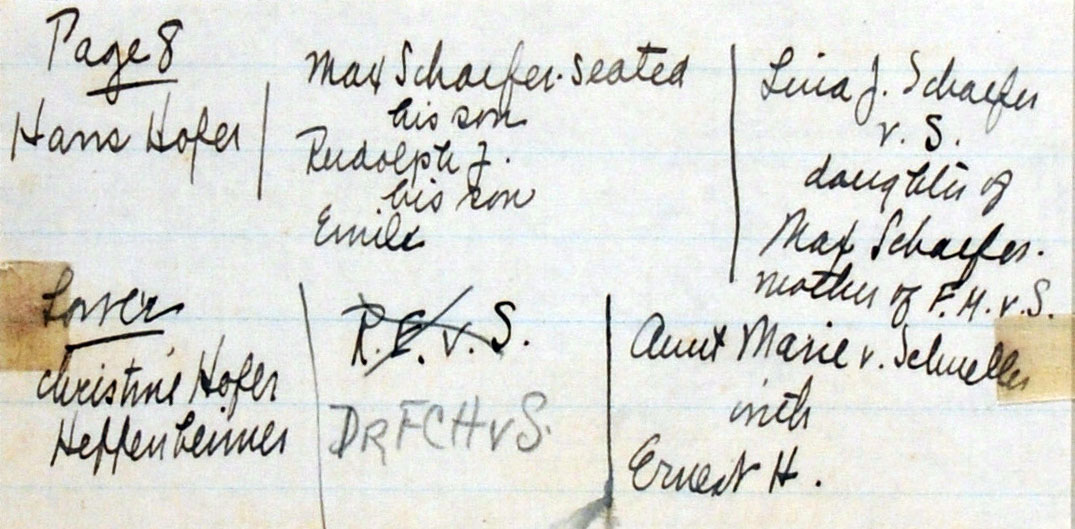 Page 8
Hans Hofer
Max Schaefer. seated
his son
Rudolph J.
his son
Emile
Lina J. Schaefer
v. S.
daughter of
Max Schaefer.
mother of F.H.v.S.
Lower
Christine Hofer
Heffenheimer
R.E.v.S.
DR FCHvS.
Aunt Marie v. Schueller
with
Ernest H.